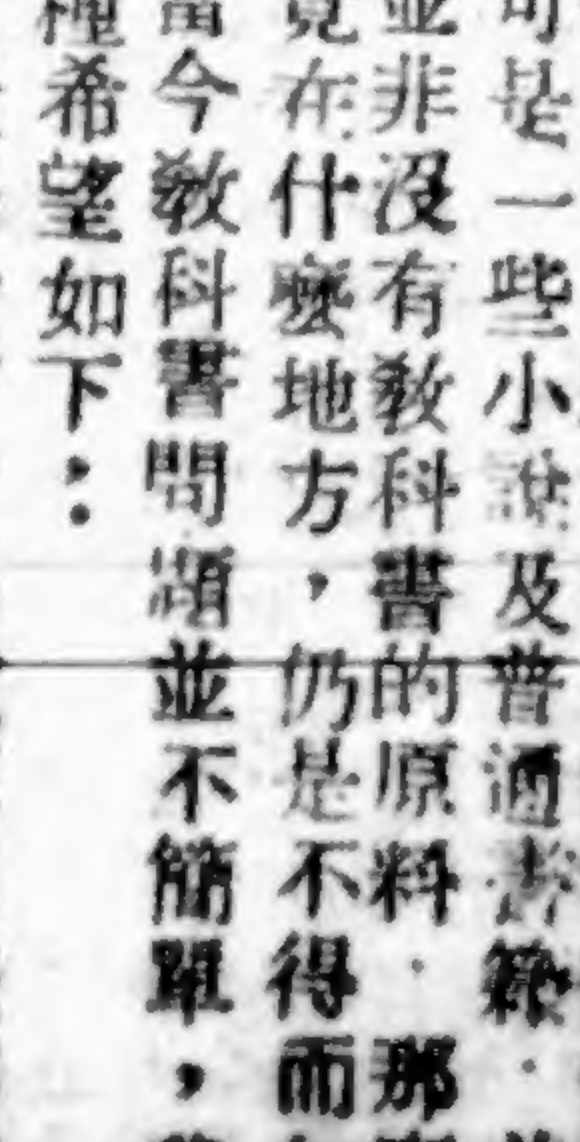 是一些小說及普通書籍．
並非沒有教科書的原料．那
竟在什麼地方，仍是不得而
當今教科書問題並不簡單，
種希望如下：